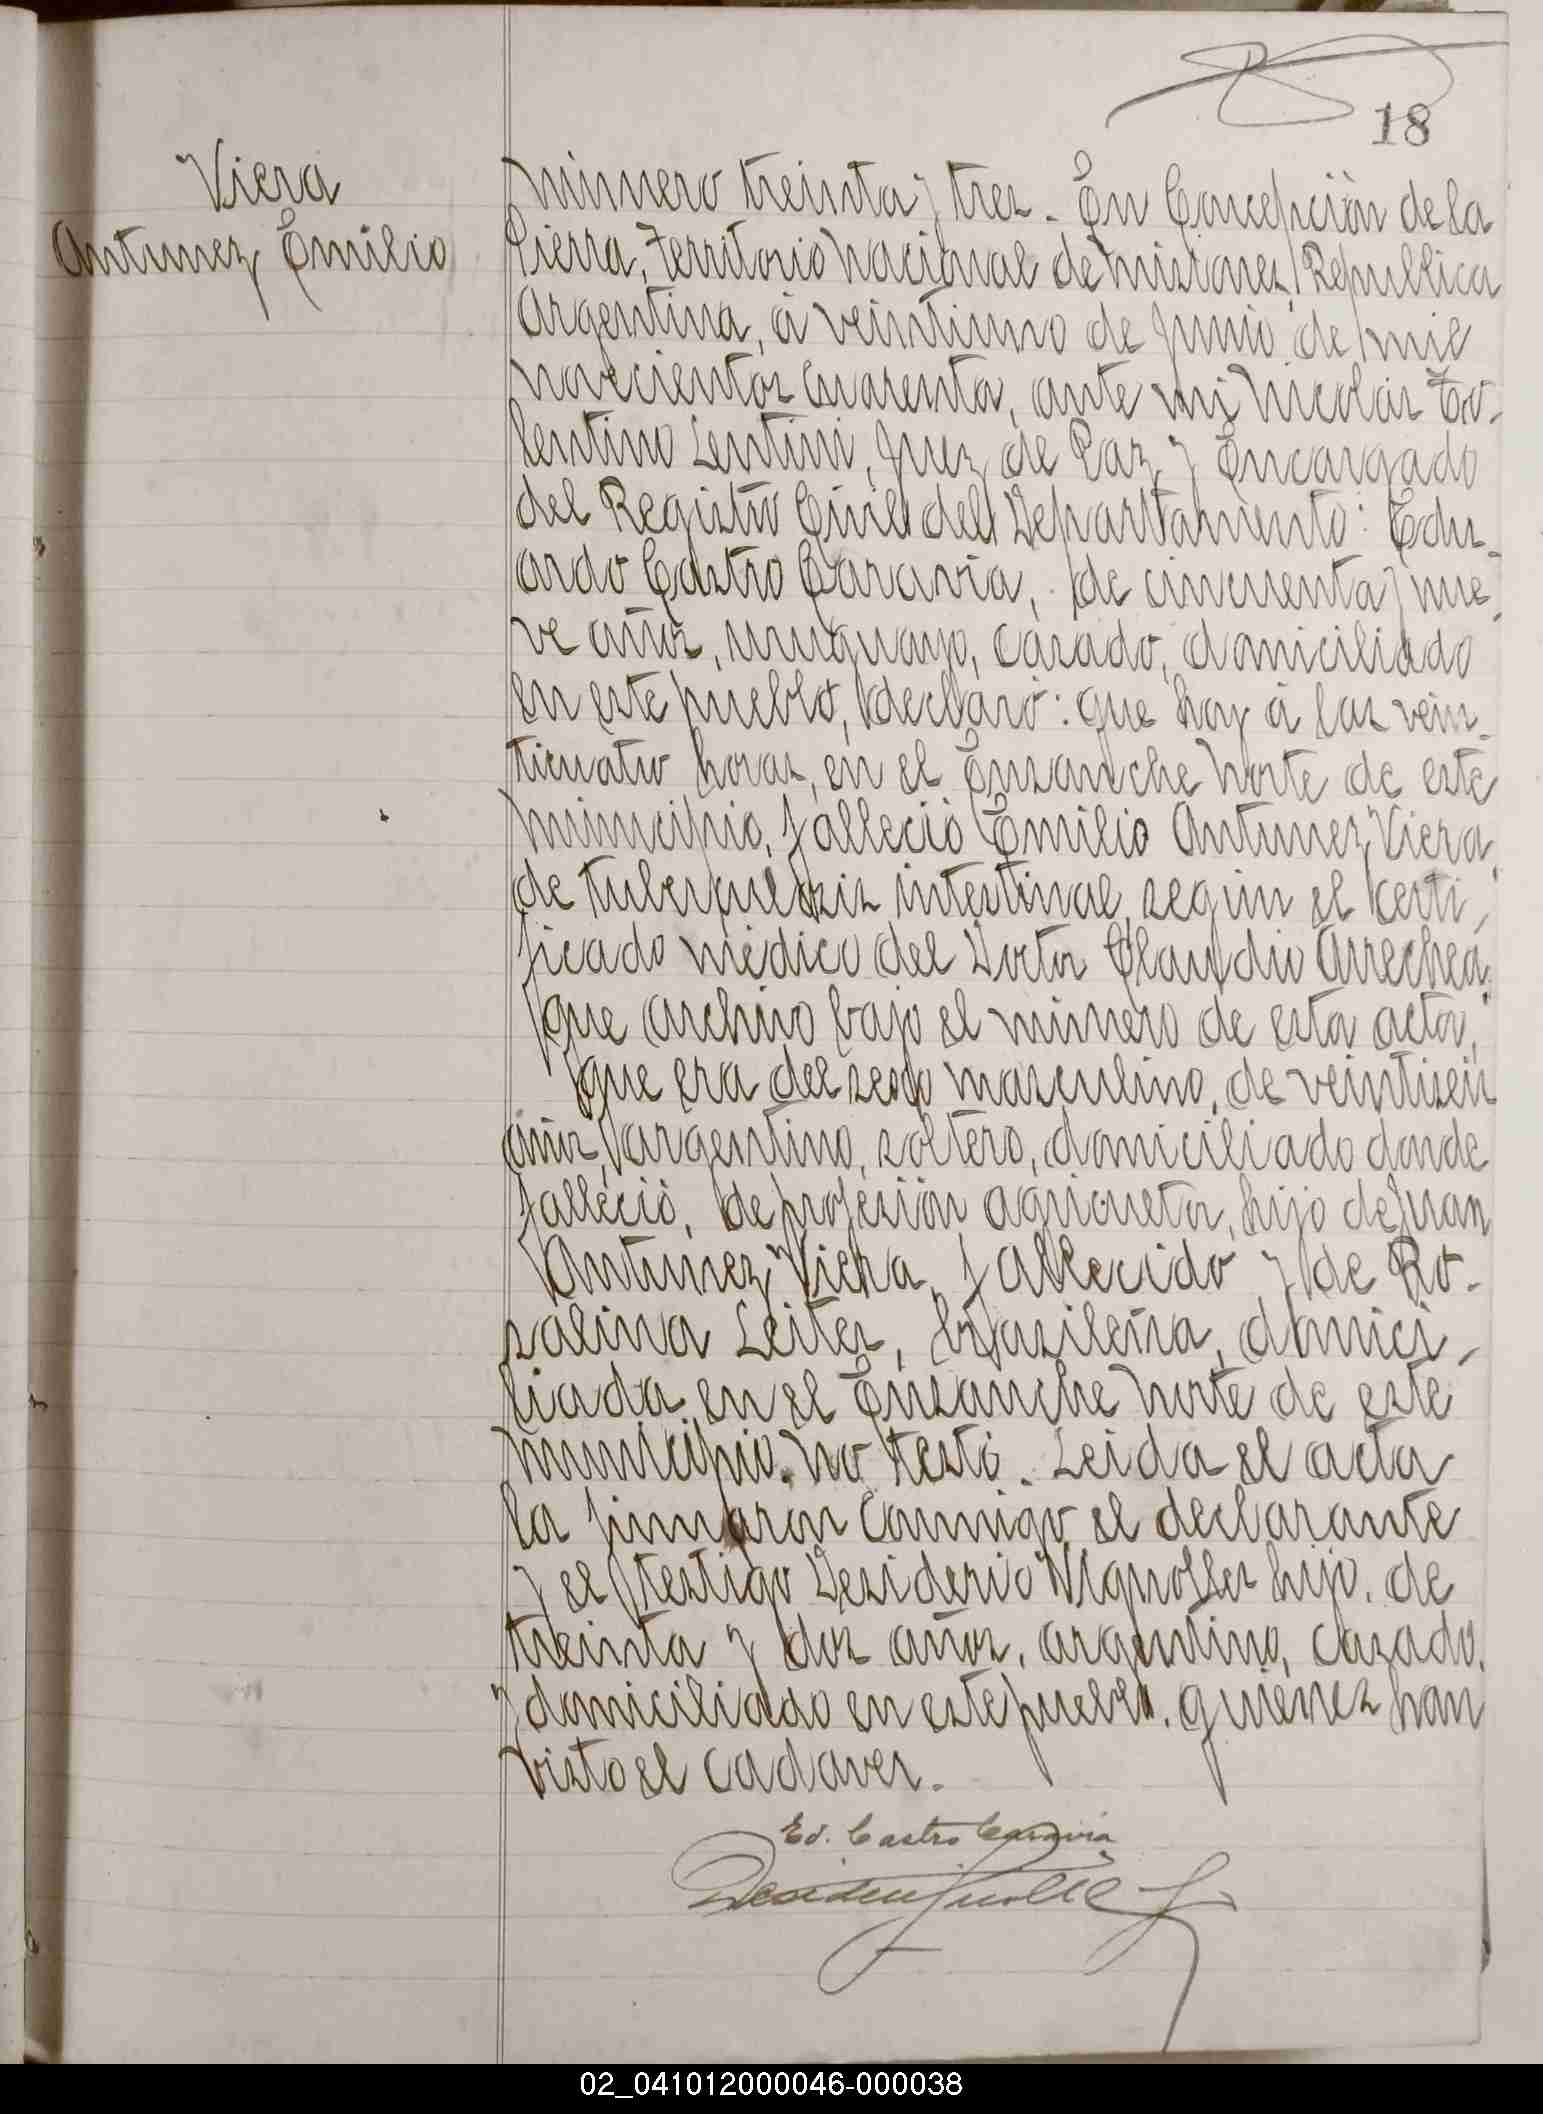 18
Viera
Antunez Emilio
Número treinta y tres. En Concepción de la
Sierra, Territorio Nacional de Misiones, Republica
Argentina, á veintiuno de Junio de mil
novecientos cuarenta, ante mi Nicolás To-
lentino Lentini, Juez de Paz y Encargado
del Registro Civil del Departamento: Edu-
ardo Castro Caravia, de cincuenta y nue-
ve años, uruguayo, casado, domiciliado
en este pueblo, declaró: que hoy á las vein-
ticuatro horas, en el Ensanche Norte de este
municipio, falleció Emilio Antunez Viera,
de tuberculosis intestinal, según el certi-
ficado médico del Doctor Claudio Arrechea,
que archivo bajo el número de esta acta,
que era del sexo masculino, de veintiseis
años, argentino, soltero, domiciliado donde
falleció, de profesión agricultor, hijo de Juan
Antunez Viera, fallecido y de Ro-
salina Leites, brasileña, domici-
liada en el Ensanche Norte de este
municipio. No testó. Leida el acta
la firmaron conmigo el declarante
y el testigo Desiderio Vignolles hijo, de
treinta y dos años, argentino, casado,
y domiciliado en este pueblo. quienes han
visto el cadaver.
Ed. Castro Caravia
02_041012000046-000038